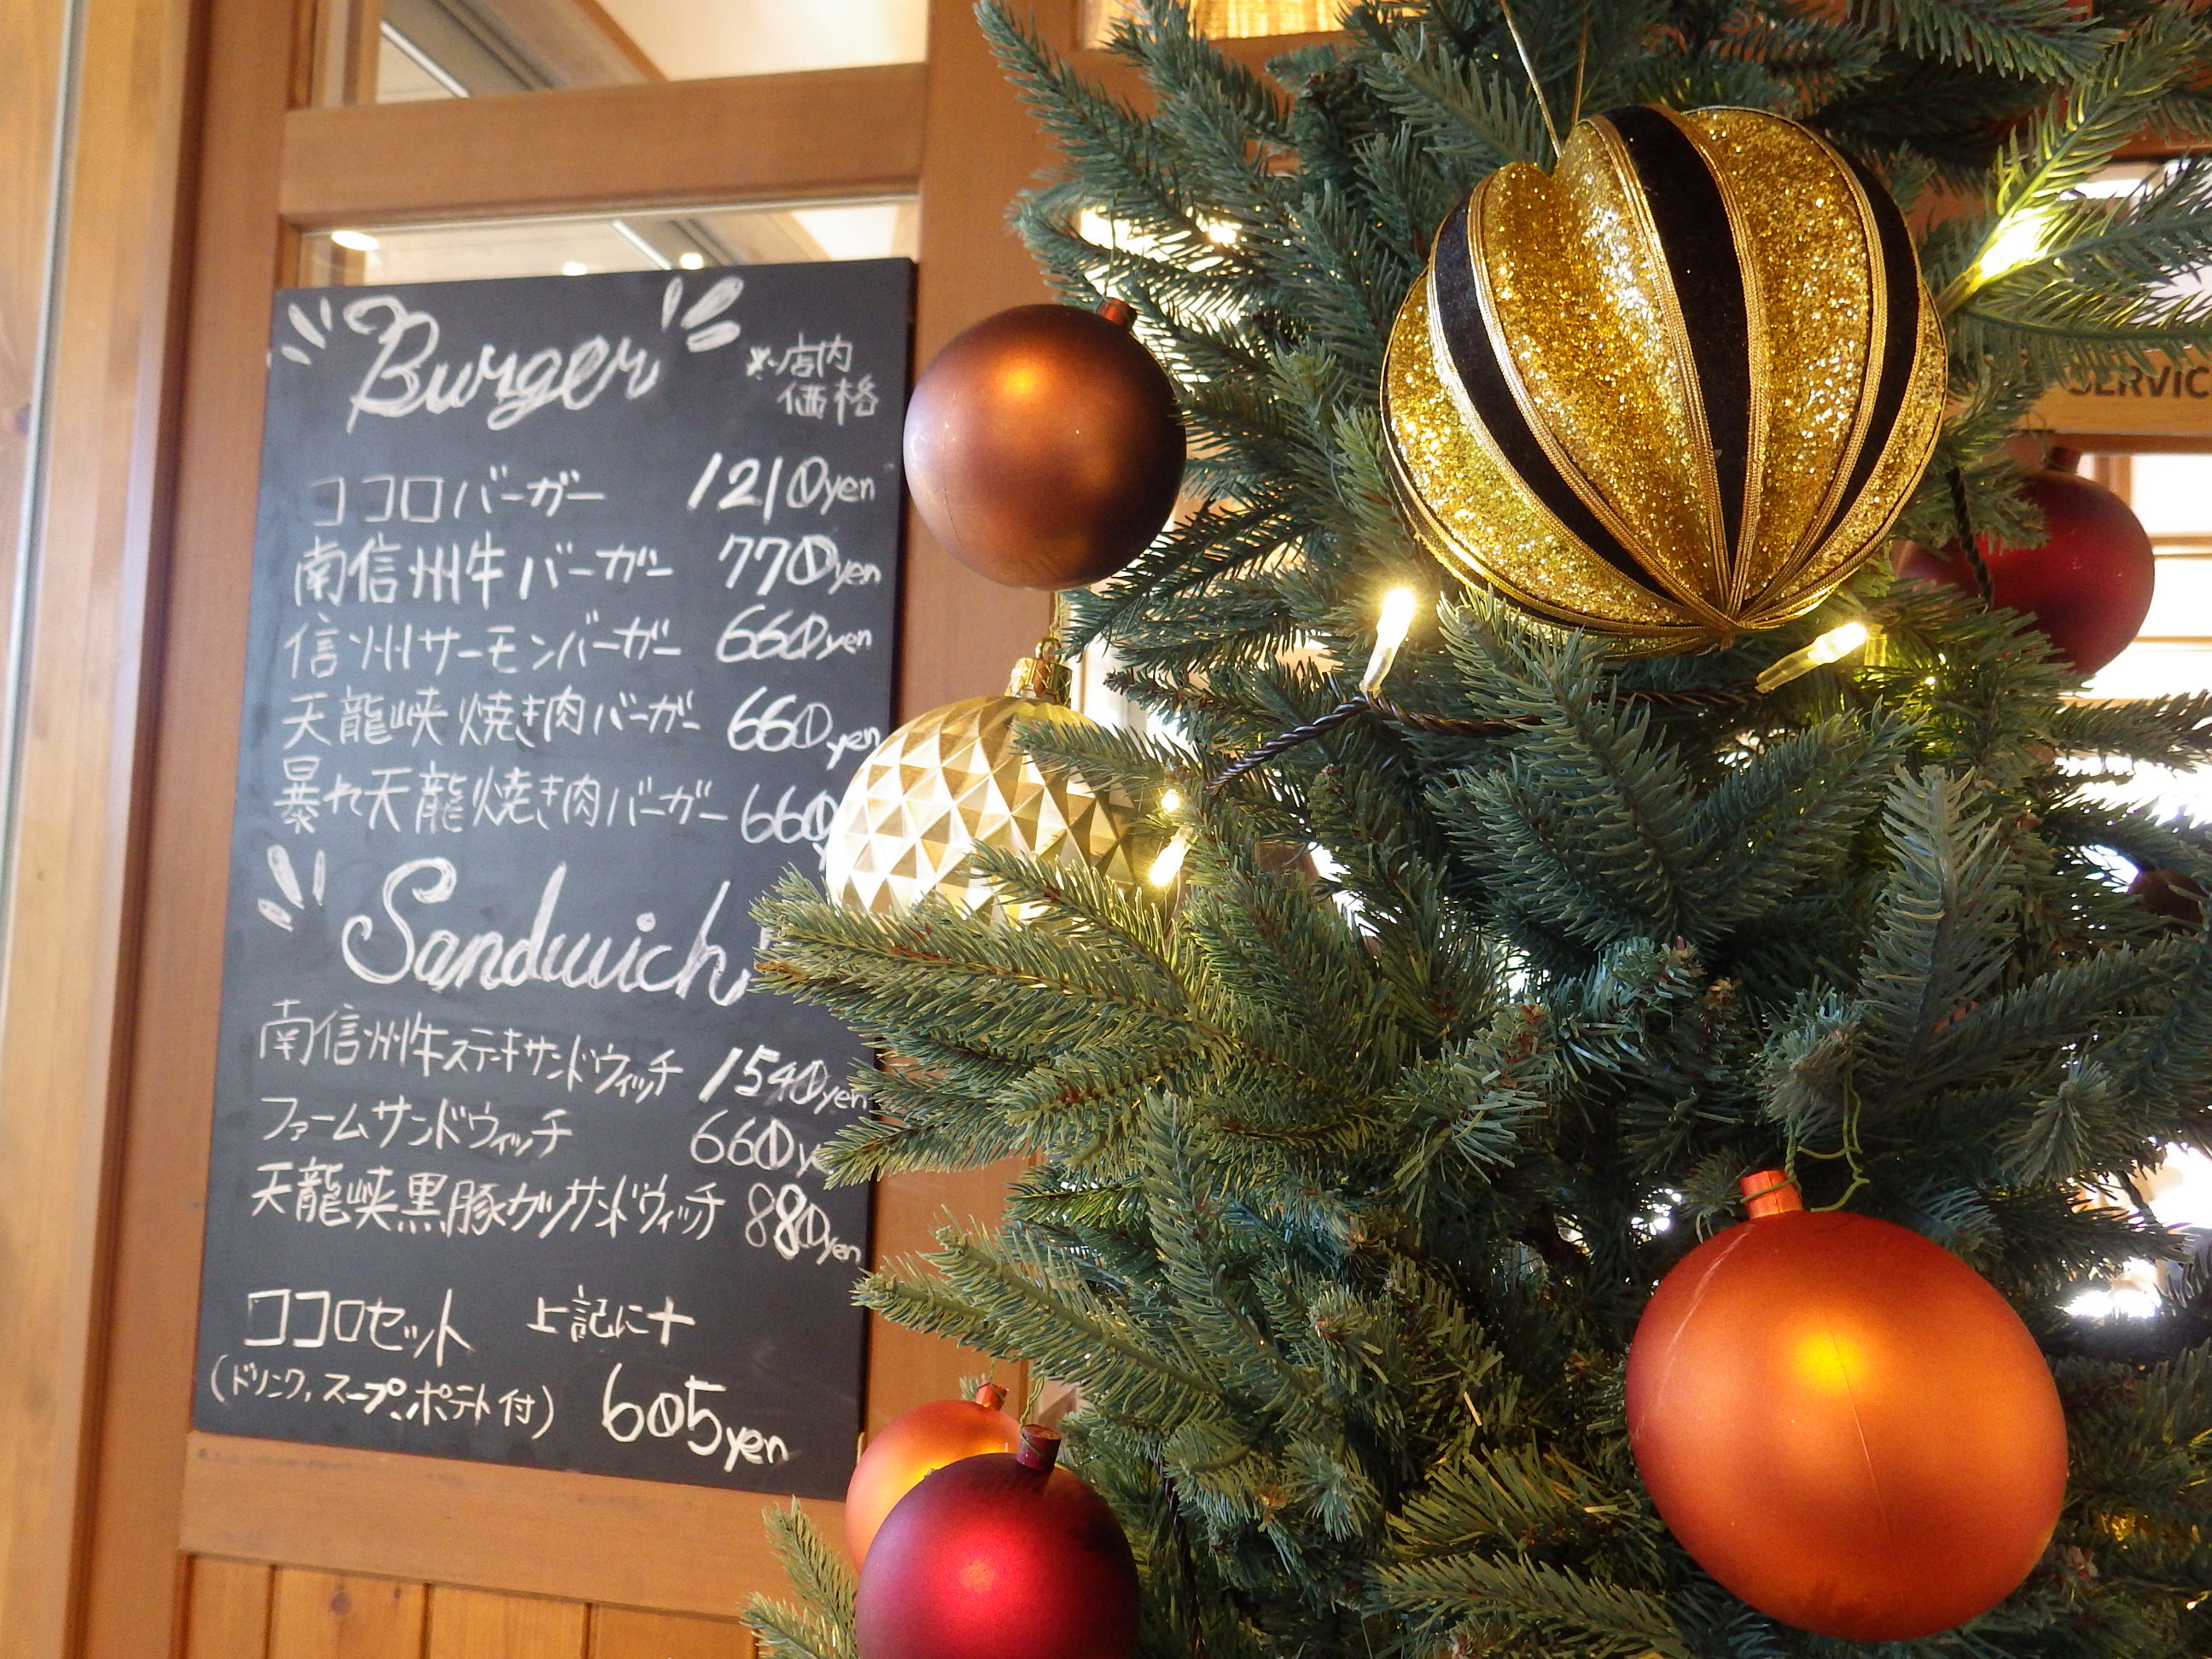 Burger
※店内
価格
ココロバーガー 1210yen
南信州牛バーガー 770yen
信州サーモンバーガー 660yen
天龍峡焼き肉バーガー 660yen
暴れ天龍焼き肉バーガー 660
Sandwich
南信州牛ステーキサンドウィッチ 1540yen
ファームサンドウィッチ 660ye
天龍峡黒豚カツサンドウィッチ 880yen
ココロセット 上記に+
(ドリンク,スープ、ポテト付) 605yen
SERVIC